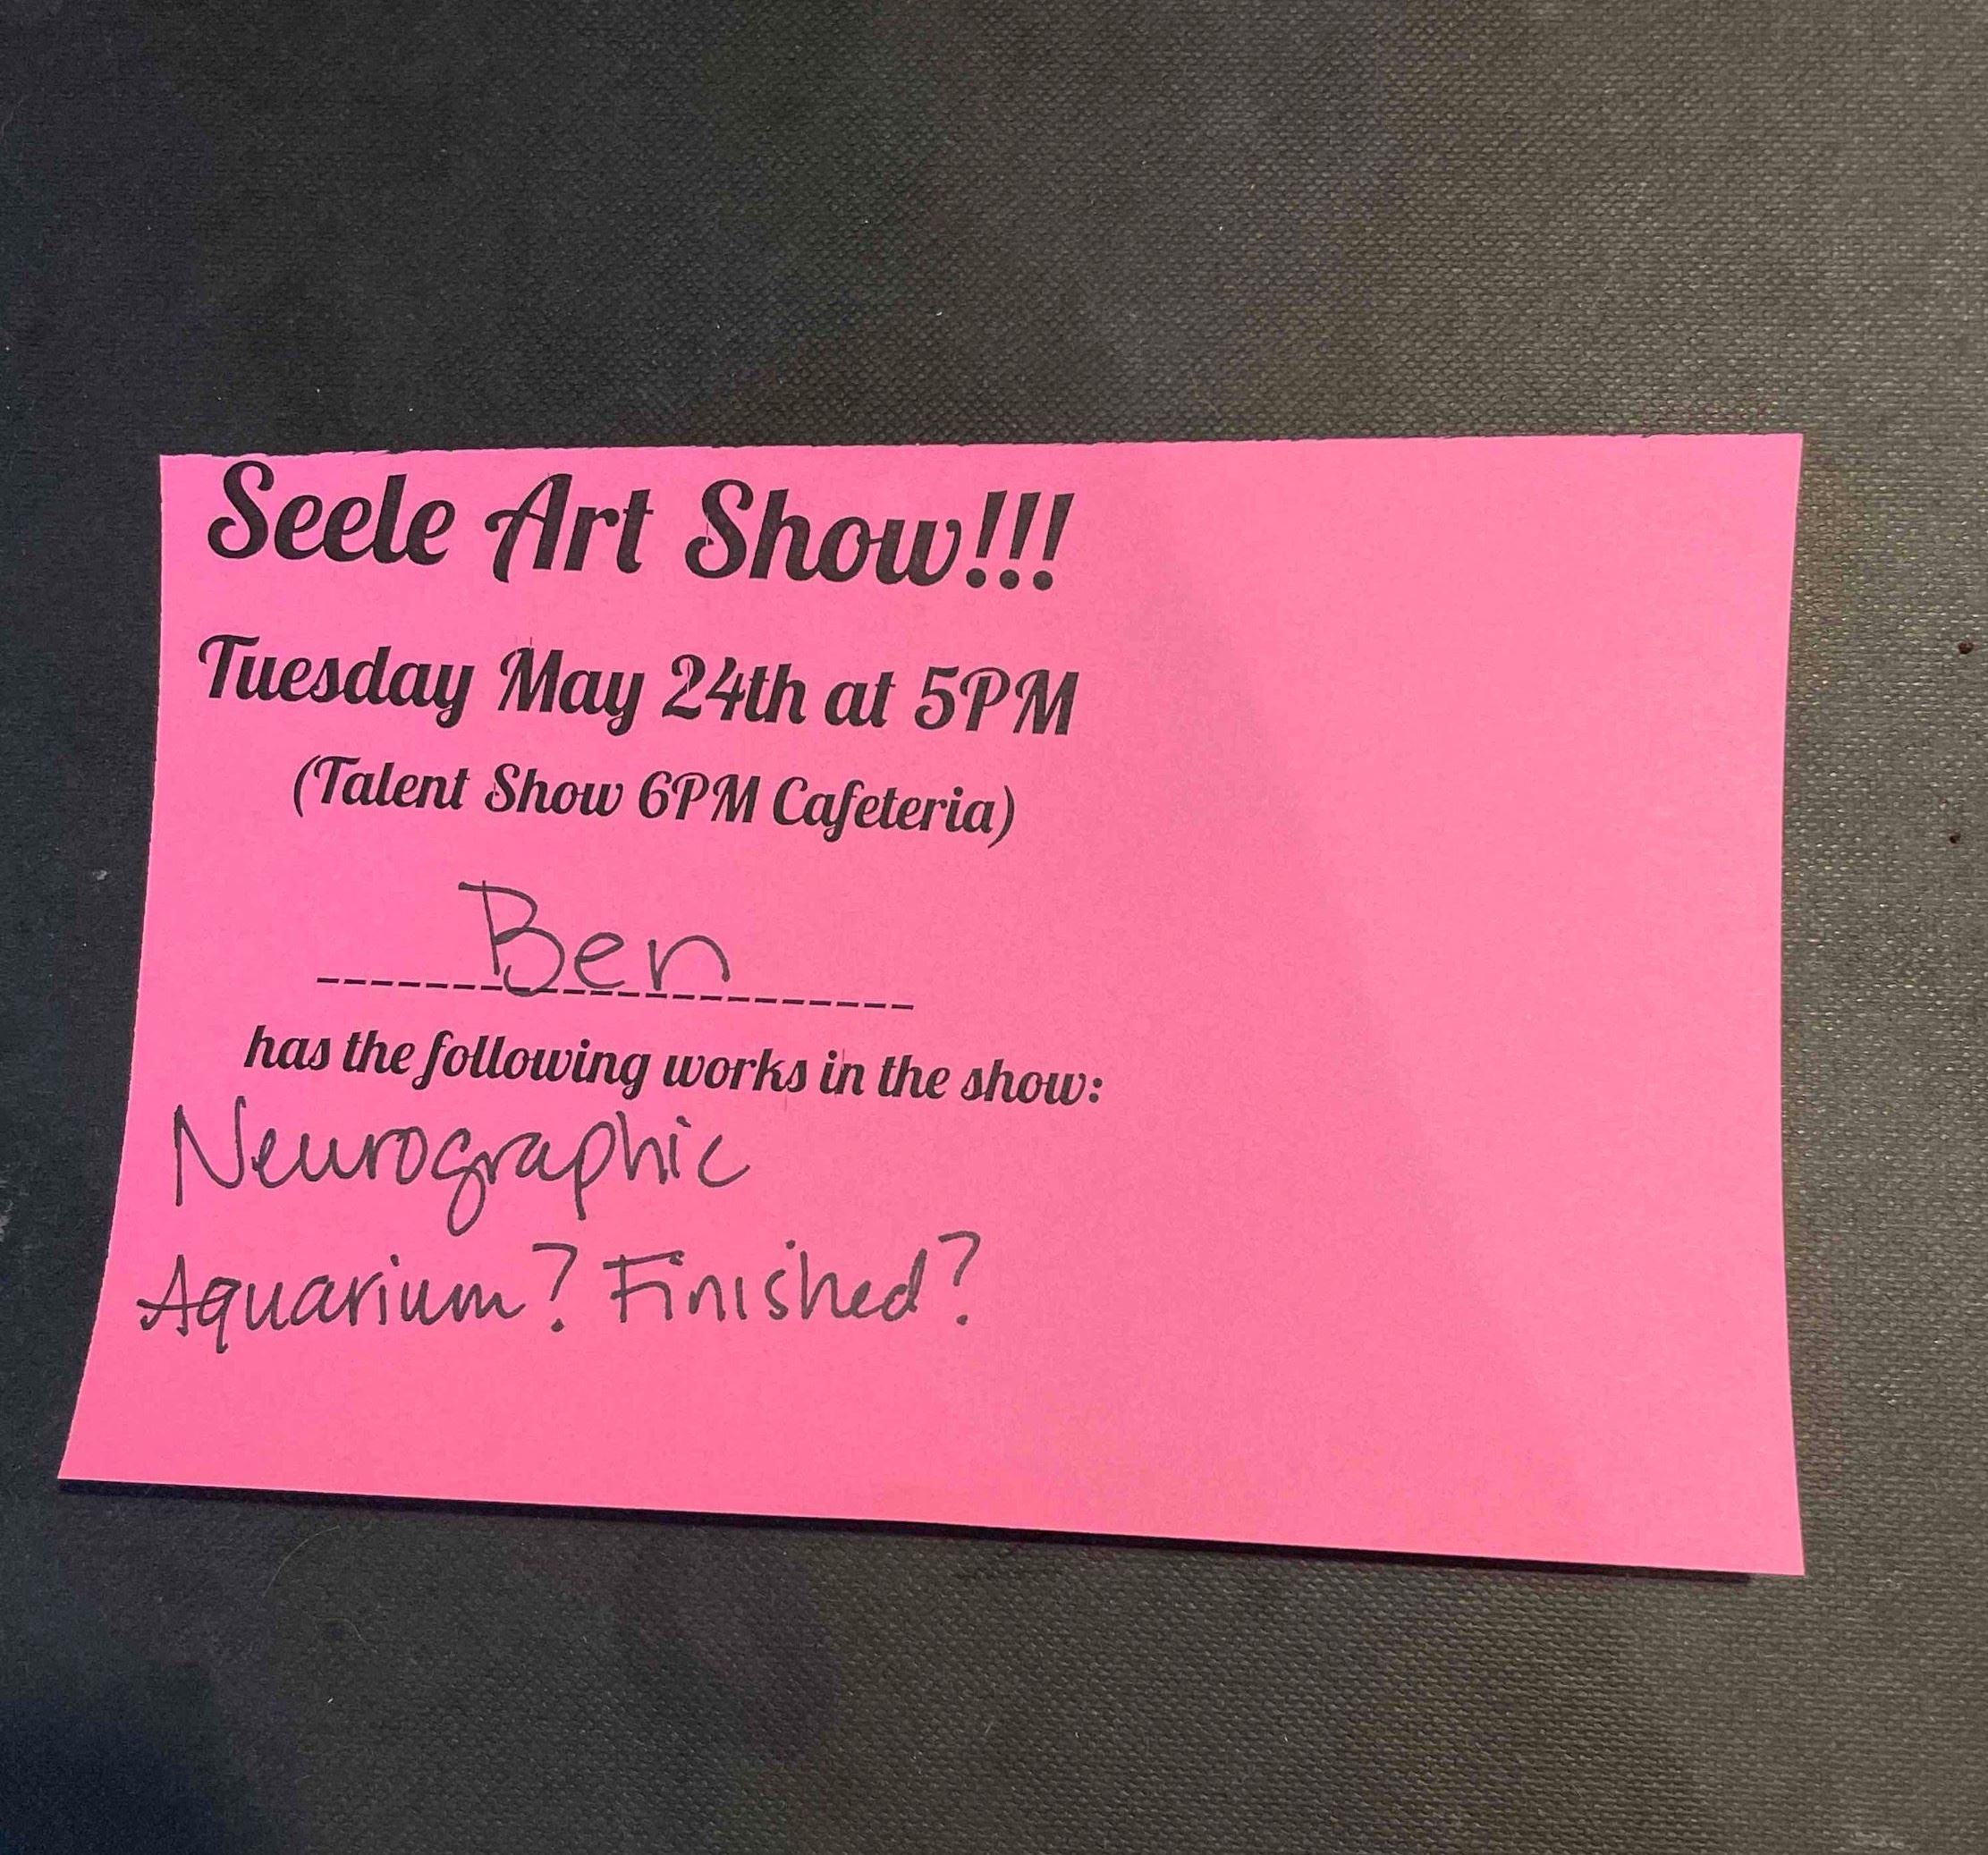 Seele Art Show!!!
Tuesday May 24th at 5PM
(Talent Show 6PM Cafeteria)
Ben
has the following works in the show:
Neurographic
Aquarium? Finished?